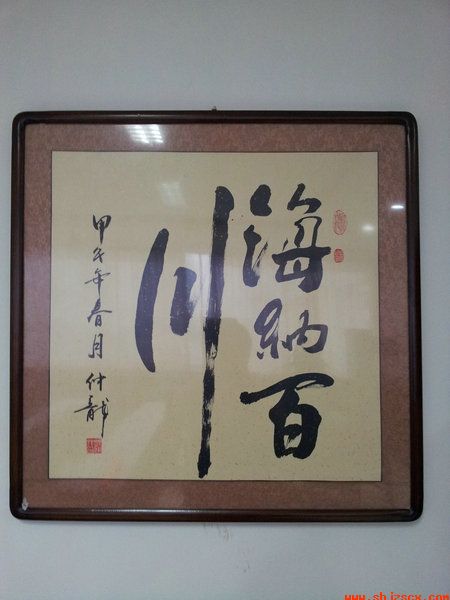 海纳百
川
甲午年春月仲龍
www.shjzscx.com